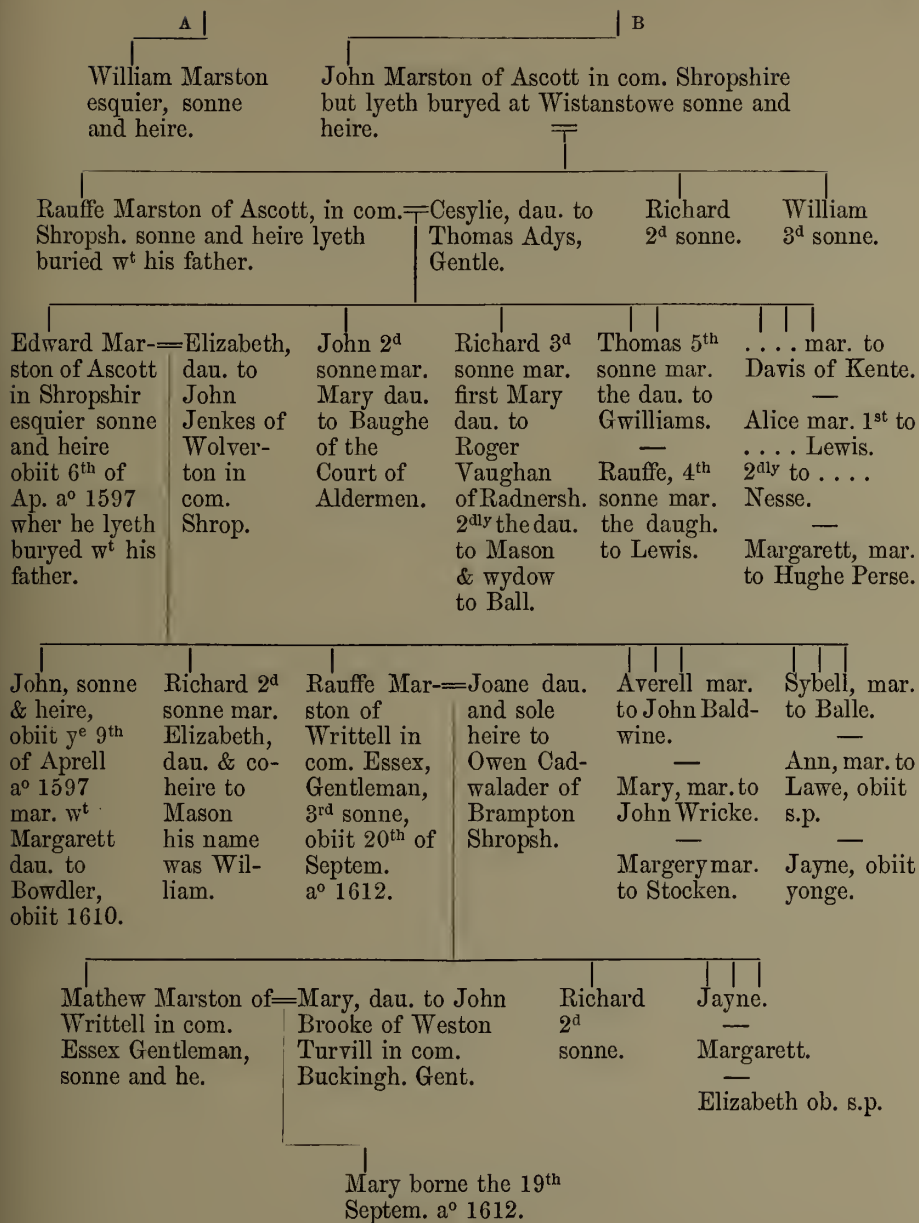 A B
William Marston
esquier, sonne
and heire.
John Marston of Ascott in com. Shropshire
but lyeth buryed at Wistanstowe sonne and
heire.
Rauffe Marston of Ascott, in com.
Shropsh. sonne and heire lyeth
buried wᵗ his father.
Cesylie, dau. to
Thomas Adys,
Gentle.
Richard
2ᵈ sonne.
William
3ᵈ sonne.
Edward Mar-
ston of Ascott
in Shropshir
esquier sonne
and heire
obiit 6ᵗʰ of
Ap. aᵒ 1597
wher he lyeth
buryed wᵗ his
father.
Elizabeth,
dau. to
John
Jenkes of
Wolver-
ton in
com.
Shrop.
John 2ᵈ
sonne mar.
Mary dau.
to Baughe
of the
Court of
Aldermen.
Richard 3ᵈ
sonne mar.
first Mary
dau. to
Roger
Vaughan
of Radnersh.
2ᵈˡʸ the dau.
to Mason
& wydow
to Ball.
Thomas 5ᵗʰ
sonne mar.
the dau. to
Gwilliams.
—
Rauffe, 4ᵗʰ
sonne mar.
the daugh.
to Lewis.
. . . . mar. to
Davis of Kente.
—
Alice mar. 1ˢᵗ to
. . . . Lewis.
2ᵈˡʸ to . . . .
Nesse.
—
Margarett, mar.
to Hughe Perse.
John, sonne
& heire,
obiit yᵉ 9ᵗʰ
of Aprell
aᵒ 1597
mar. wᵗ
Margarett
dau. to
Bowdler,
obiit 1610.
Richard 2ᵈ
sonne mar.
Elizabeth,
dau. & co-
heire to
Mason
his name
was Wil-
liam.
Rauffe Mar-
ston of
Writtell in
com. Essex,
Gentleman,
3ʳᵈ sonne,
obiit 20ᵗʰ of
Septem.
aᵒ 1612.
Joane dau.
and sole
heire to
Owen Cad-
walader of
Brampton
Shropsh.
Averell mar.
to John Bald-
wine.
—
Mary, mar. to
John Wricke.
—
Margery mar.
to Stocken.
Sybell, mar.
to Balle.
—
Ann, mar. to
Lawe, obiit
s.p.
—
Jayne, obiit
yonge.
Mathew Marston of
Writtell in com.
Essex Gentleman,
sonne and he.
Mary, dau. to John
Brooke of Weston
Turvill in com.
Buckingh. Gent.
Richard
2ᵈ
sonne.
Jayne.
—
Margarett.
—
Elizabeth ob. s.p.
Mary borne the 19ᵗʰ
Septem. aᵒ 1612.